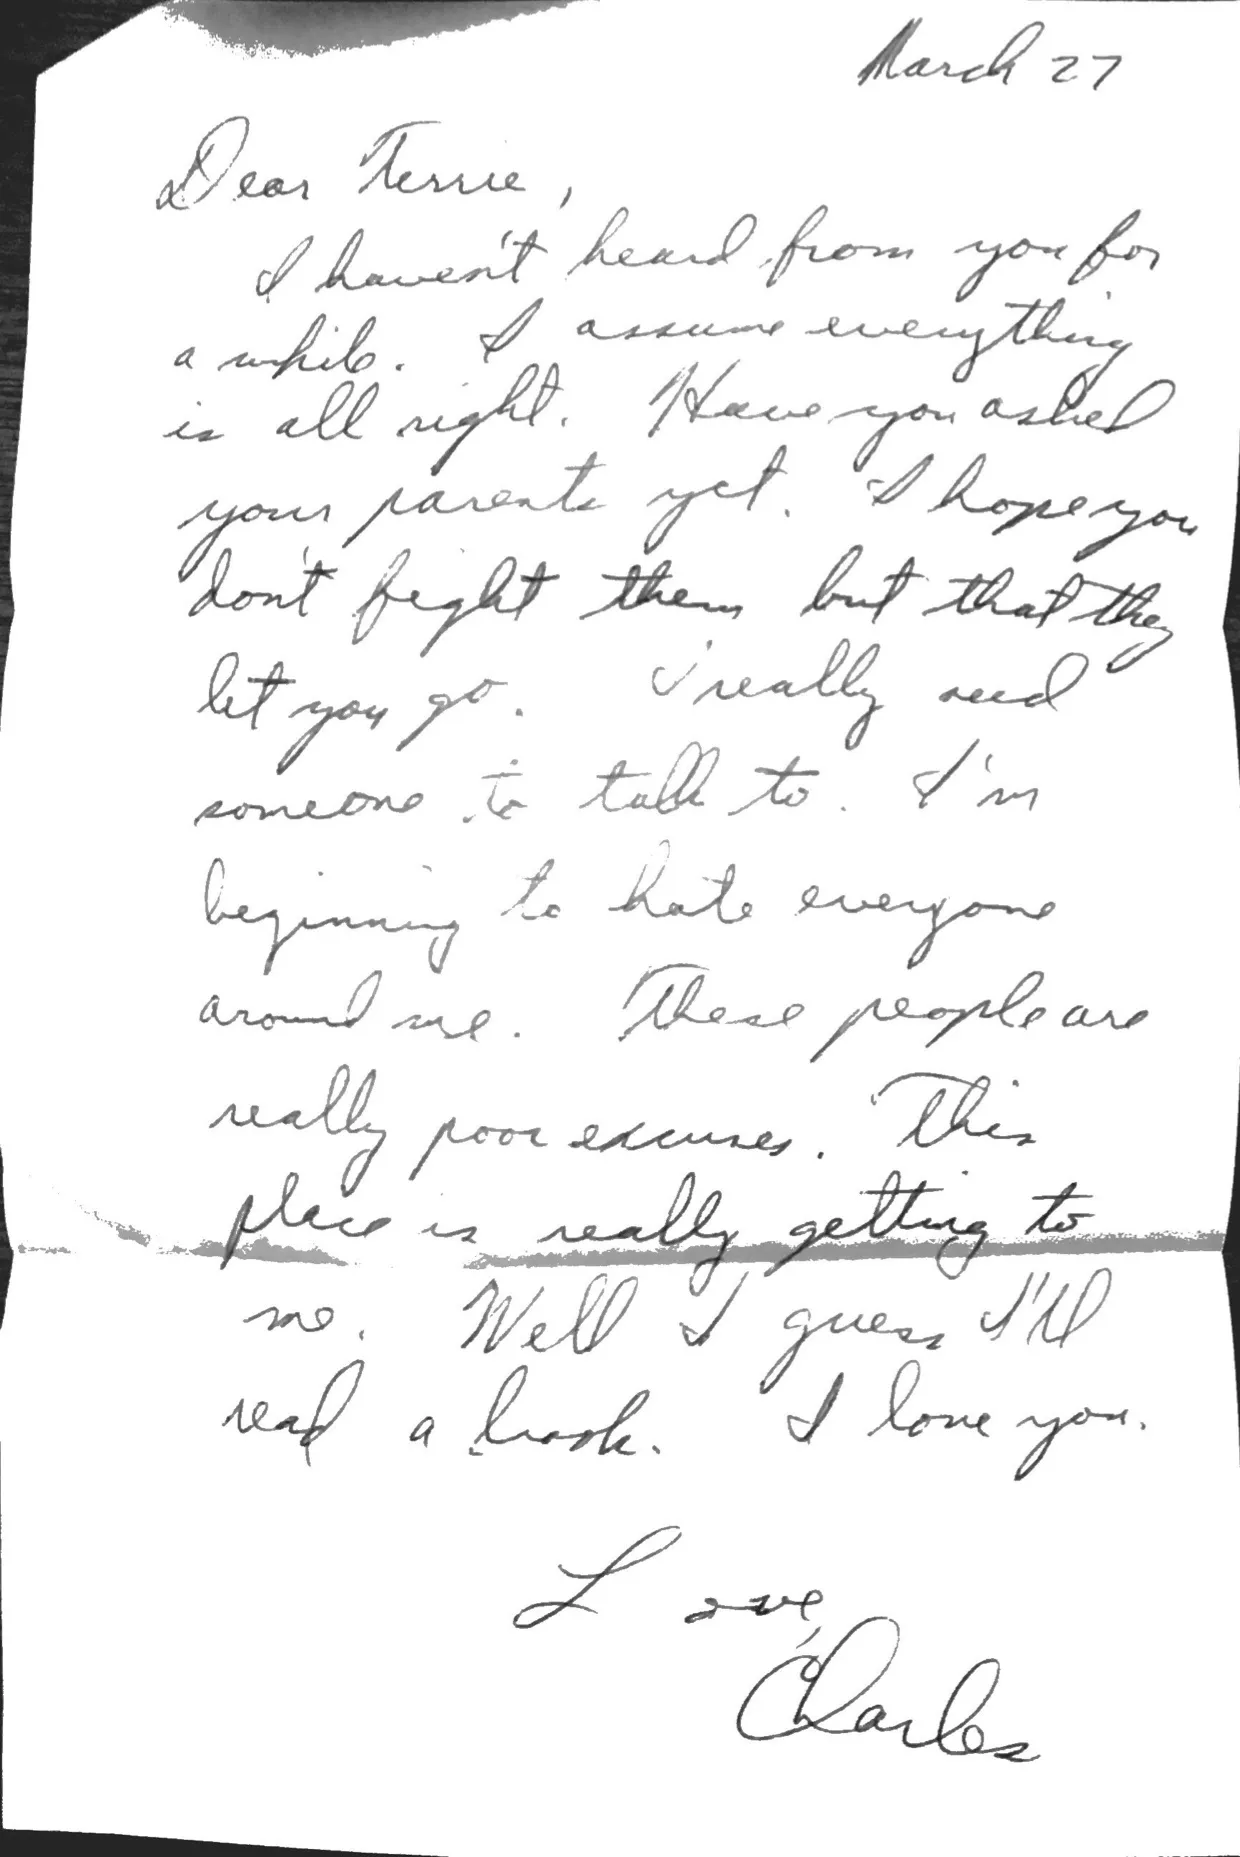 March 27
Dear Terrie,
I haven't heard from you for
a while. I assume everything
is all right. Have you asked
your parents yet. I hope you
don't fight them but that they
let you go. I really need
someone to talk to. I'm
beginning to hate everyone
around me. These people are
really poor excuses. This
place is really getting to
me. Well I guess I'll
read a book. I love you.
Love,
Charles